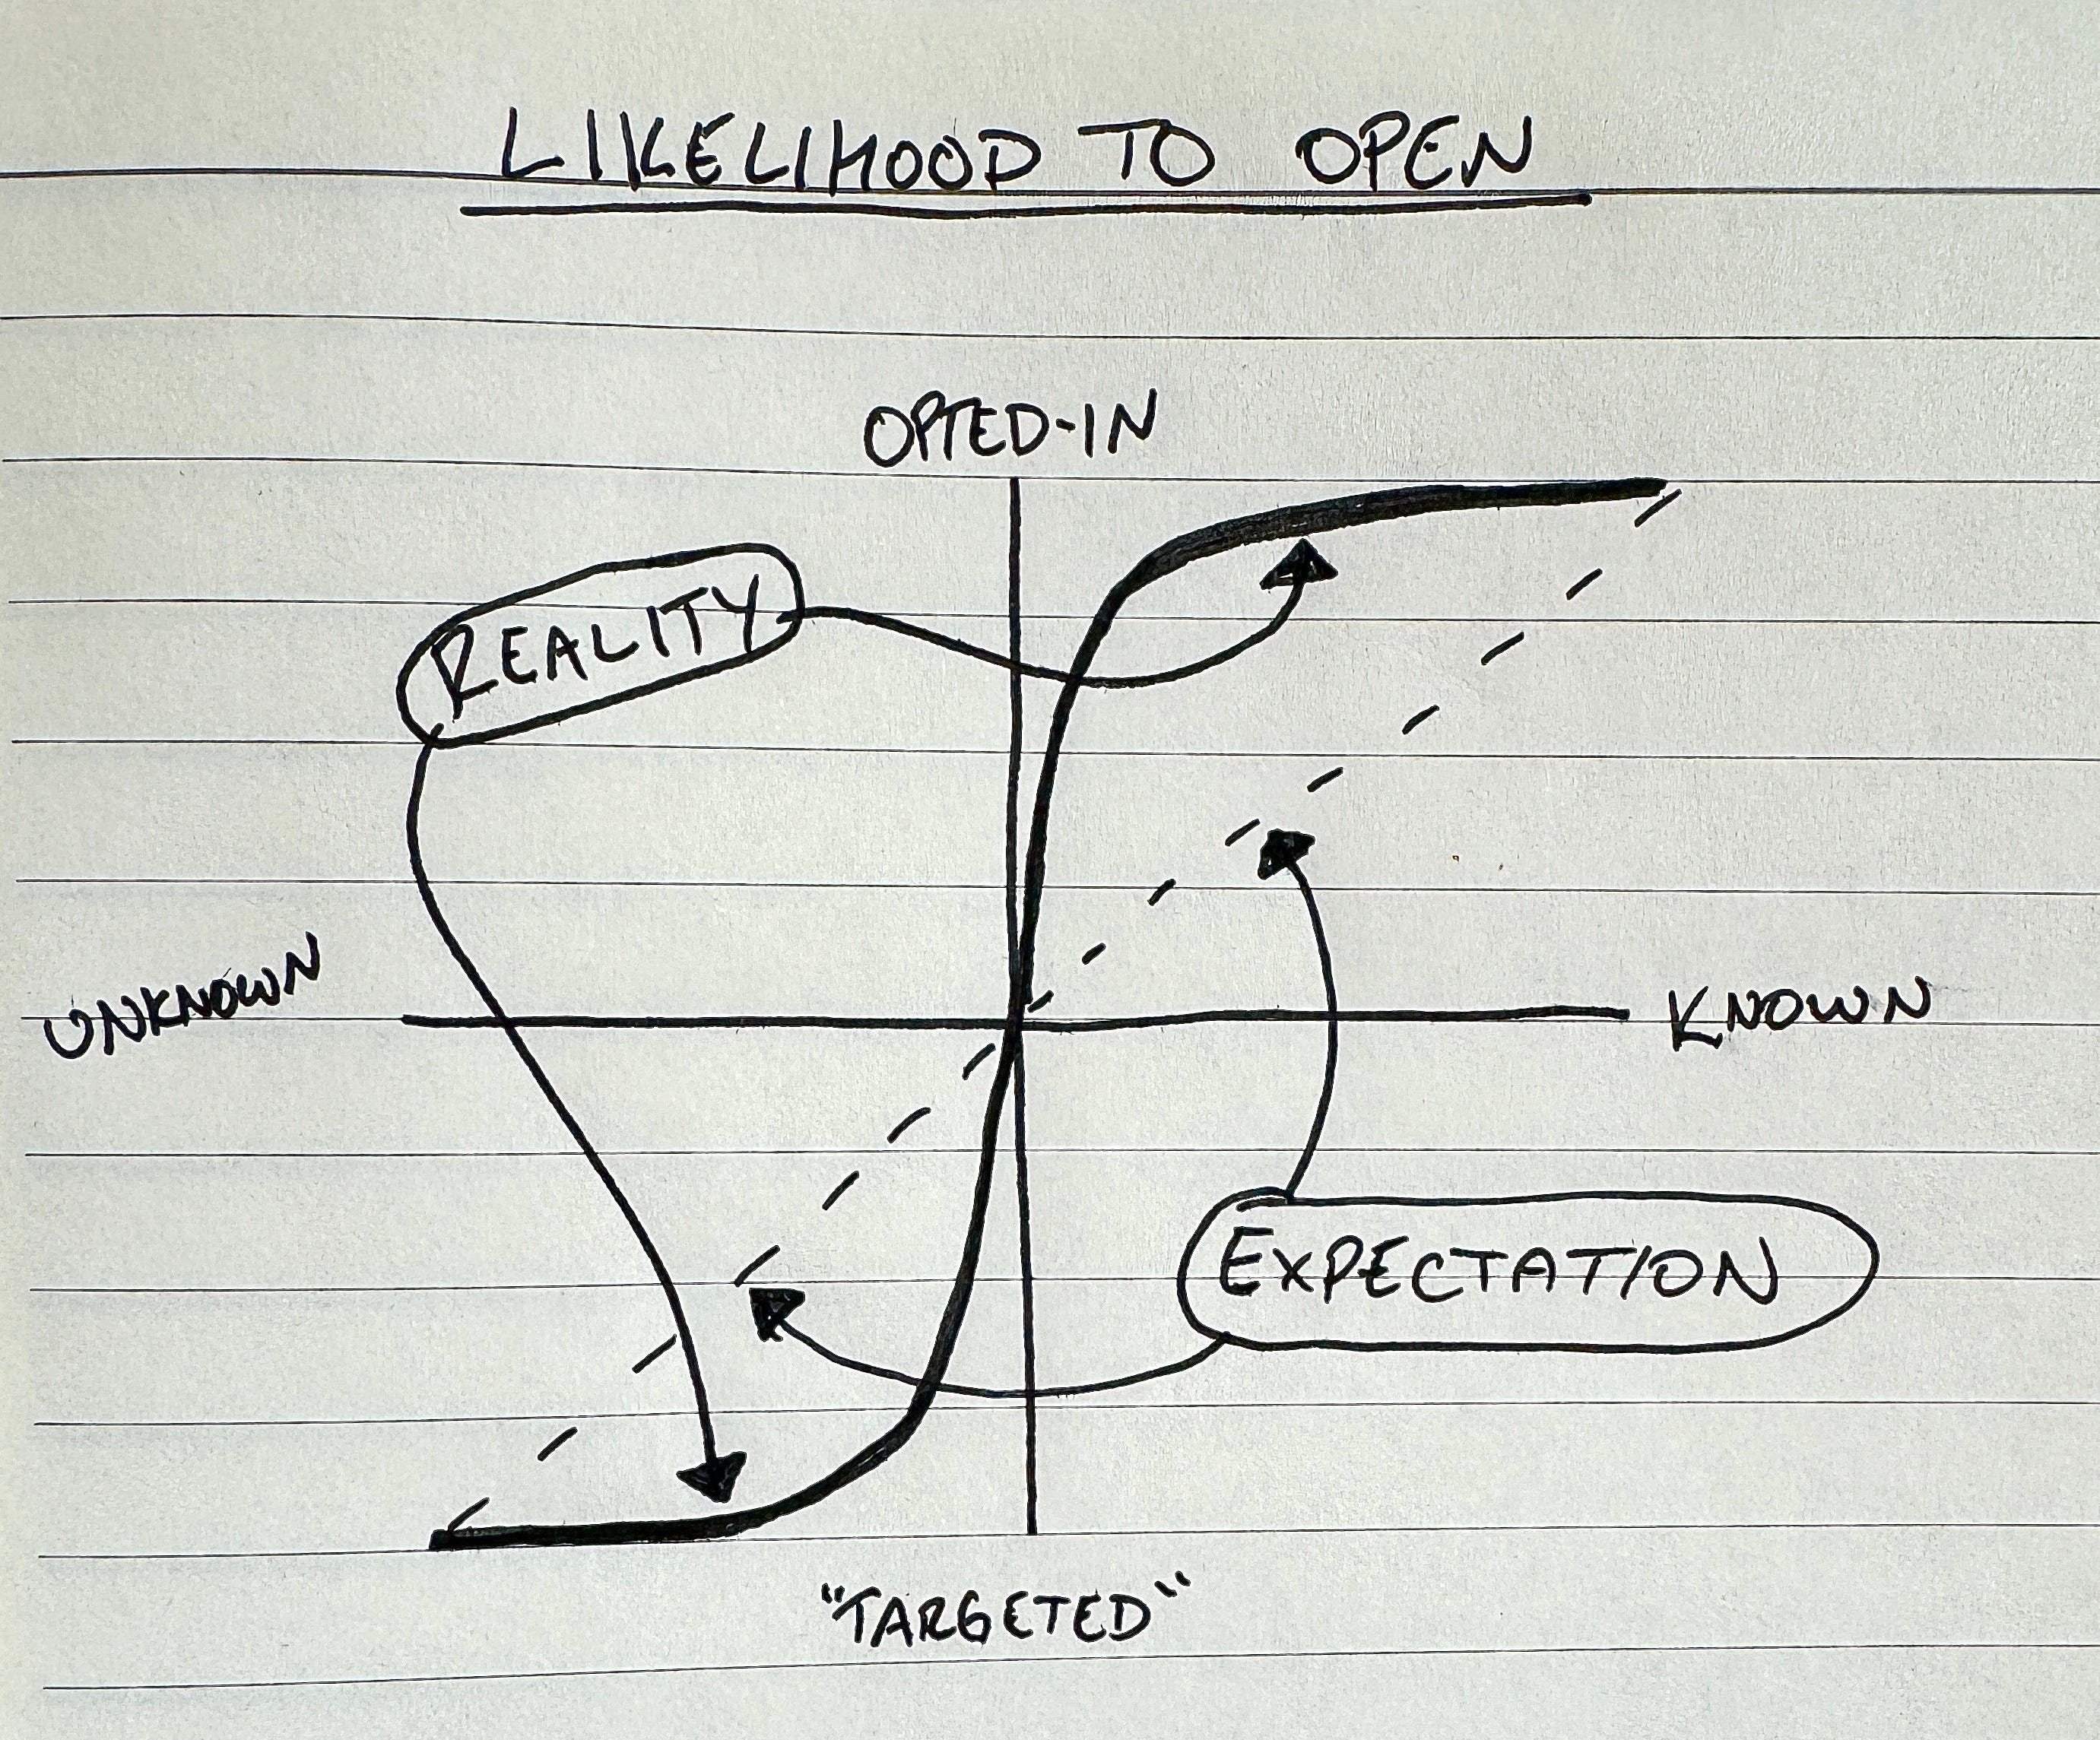 LIKELIHOOD TO OPEN
OPTED-IN
REALITY
UNKNOWN
KNOWN
EXPECTATION
"TARGETED"